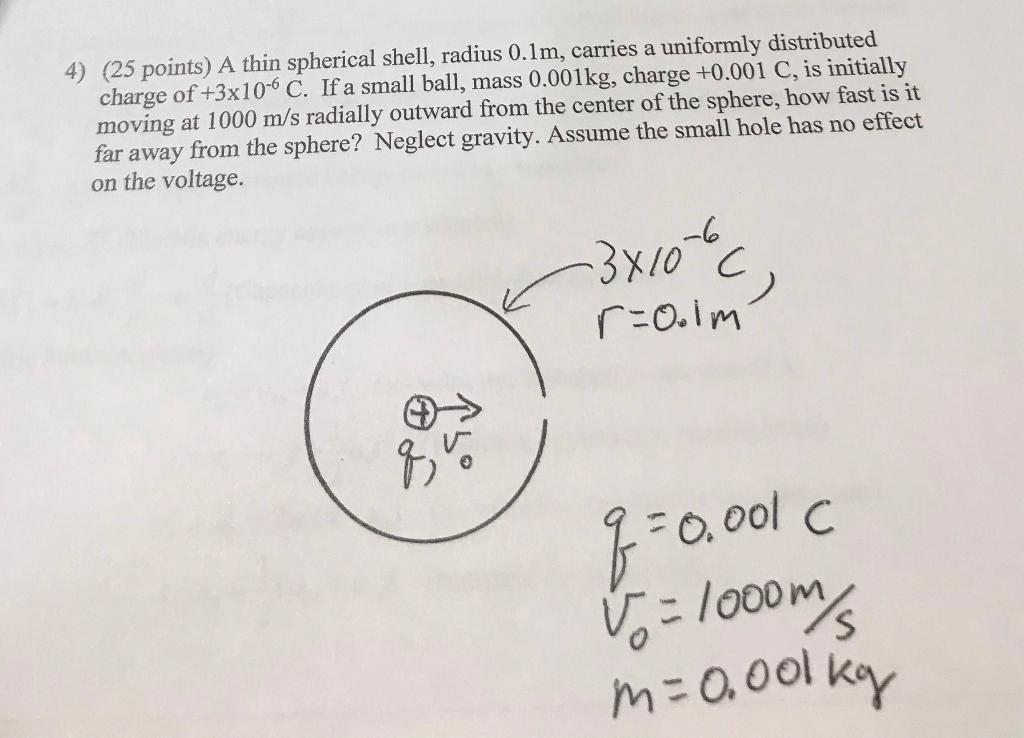 4) (25 points) A thin spherical shell, radius 0.1m, carries a uniformly distributed
charge of +3x10⁻⁶ C. If a small ball, mass 0.001kg, charge +0.001 C, is initially
moving at 1000 m/s radially outward from the center of the sphere, how fast is it
far away from the sphere? Neglect gravity. Assume the small hole has no effect
on the voltage.
3x10⁻⁶ C,
r=0.1m
+
q, v₀
q = 0.001 C
v₀ = 1000 m/s
m = 0.001 kg